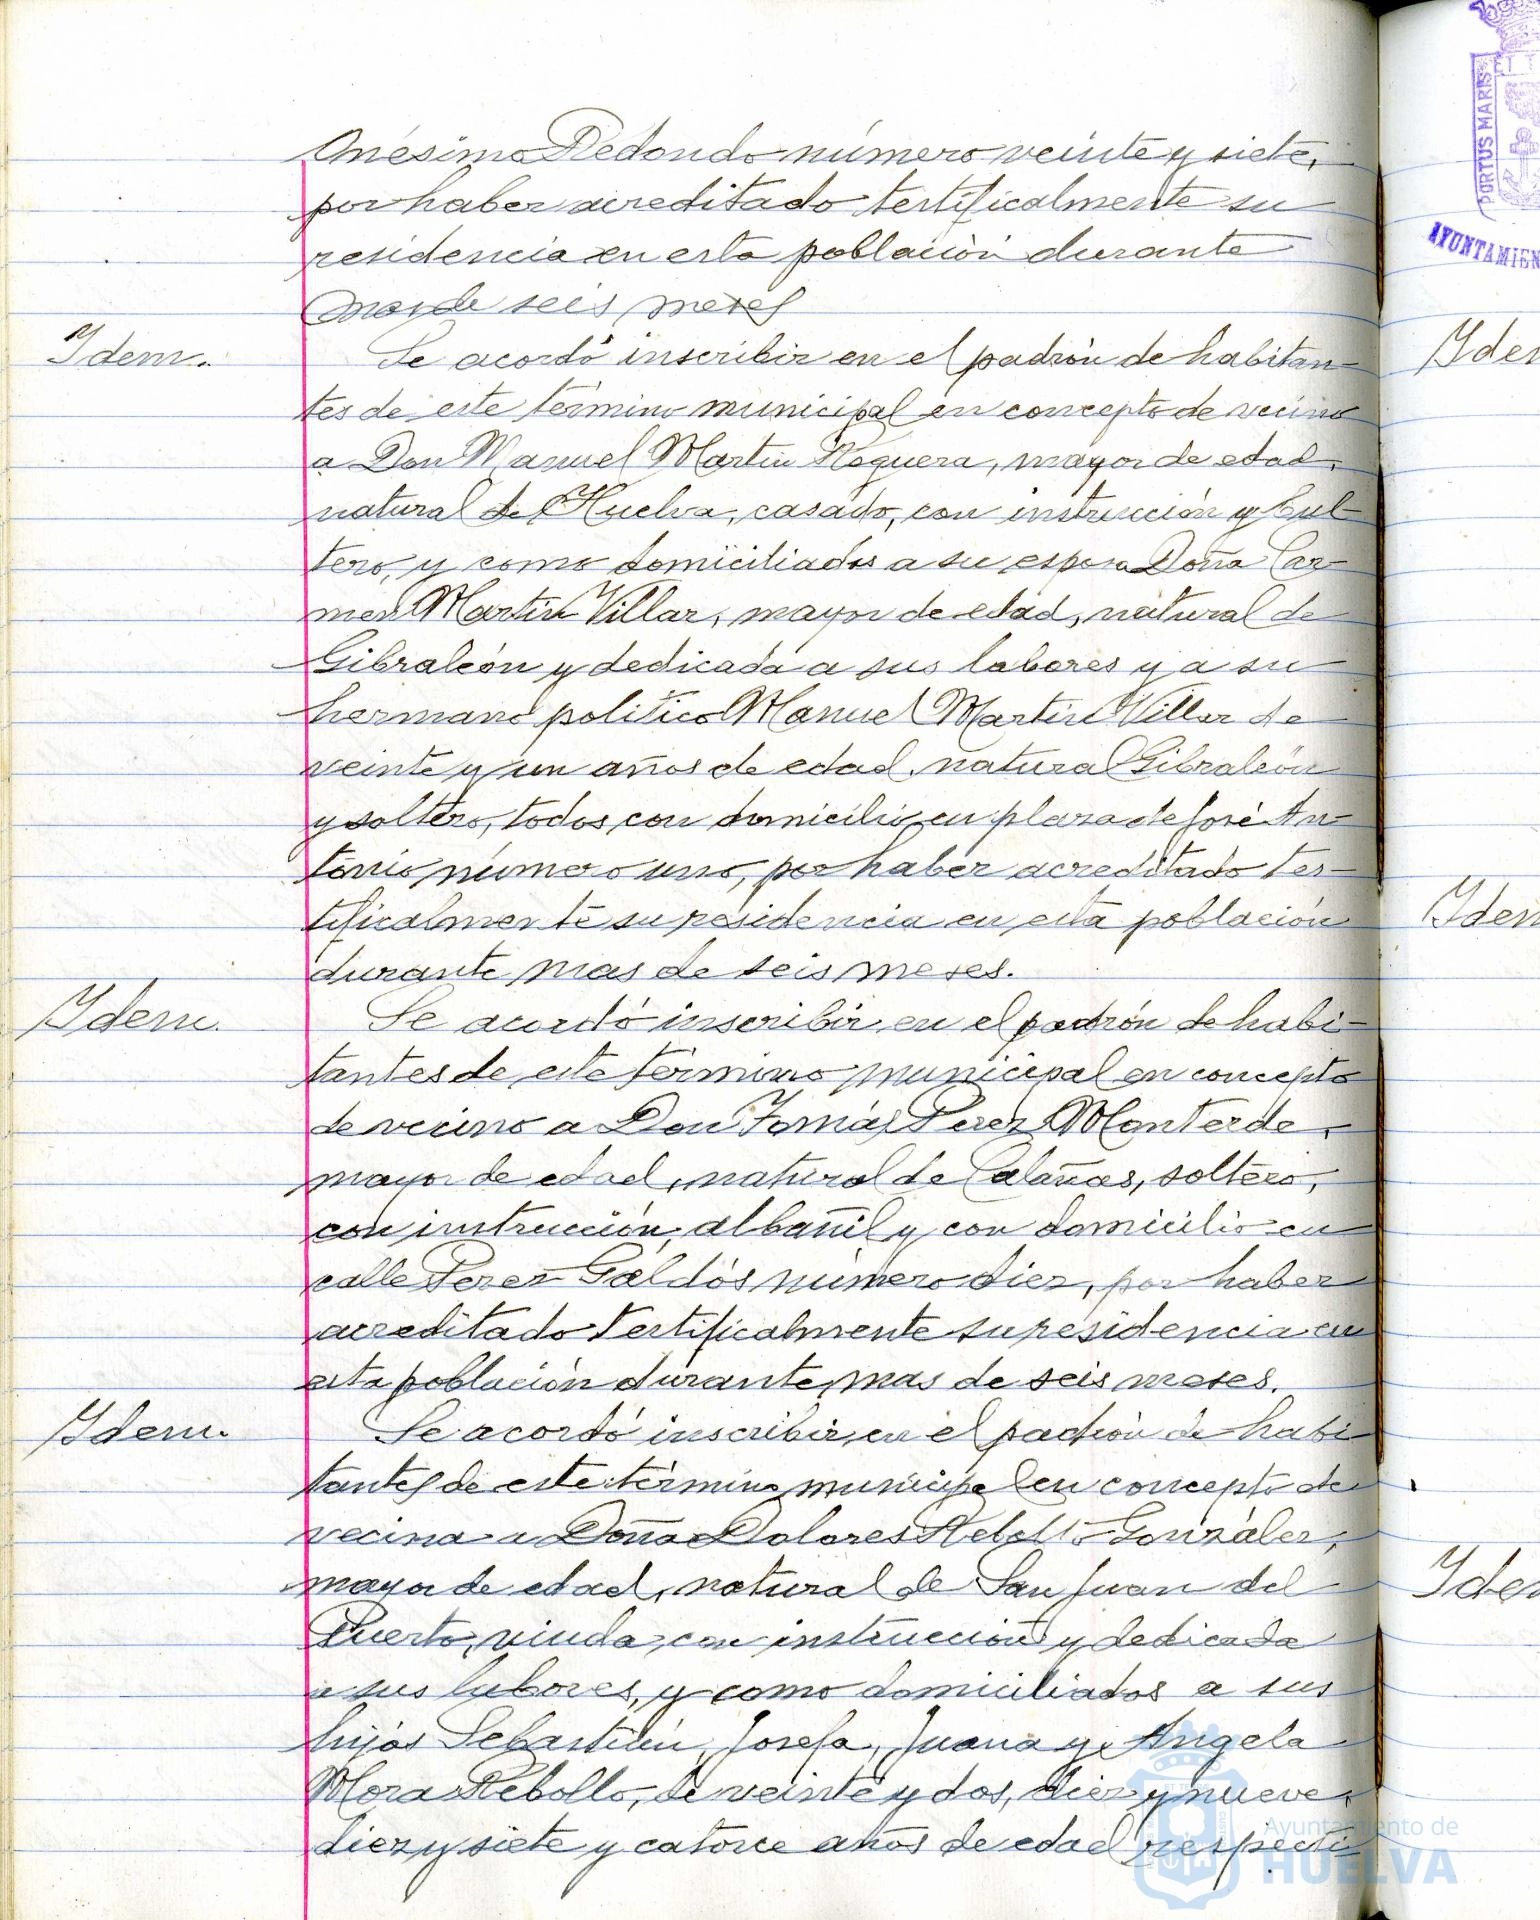 Onésimo Redondo número veinte y siete,
por haber acreditado testificalmente su
residencia en esta población durante
mas de seis meses
Idem.
Se acordó inscribir en el padrón de habitan-
tes de este término municipal en concepto de vecino
a Don Manuel Martin Noguera, mayor de edad,
natural de Huelva, casado, con instrucción y
tero, y como domiciliados a su esposa Doña Car-
men Martin Villar, mayor de edad, natural de
Gibraleón y dedicada a sus labores y a su
hermano politico Manuel Martin Villar de
veinte y un años de edad, natural Gibraleón
y soltero, todos con domicilio en plaza de José An-
tonio número uno, por haber acreditado tes-
tificalmente su residencia en esta población
durante mas de seis meses.
Idem.
Se acordó inscribir en el padrón de habi-
tantes de este término municipal en concepto
de vecino a Don Tomás Perez Monterde,
mayor de edad, natural de Calañas, soltero,
con instrucción, albañil y con domicilio en
calle Perez Galdós número diez, por haber
acreditado testificalmente su residencia en
esta población durante mas de seis meses.
Idem.
Se acordó inscribir en el padrón de habi-
tantes de este término municipal en concepto de
vecina a Doña Dolores Rebollo González,
mayor de edad, natural de San Juan del
Puerto, viuda, con instrucción y dedicada
a sus labores, y como domiciliados a sus
hijos Sebastián, Josefa, Juana y Angela
Mora Rebollo, de veinte y dos, diez y nueve,
diez y siete y catorce años de edad respecti-
PORTUS MARIS
ET T
AYUNTAMIEN
Iden
Iden
Iden
Ayuntamiento de
HUELVA